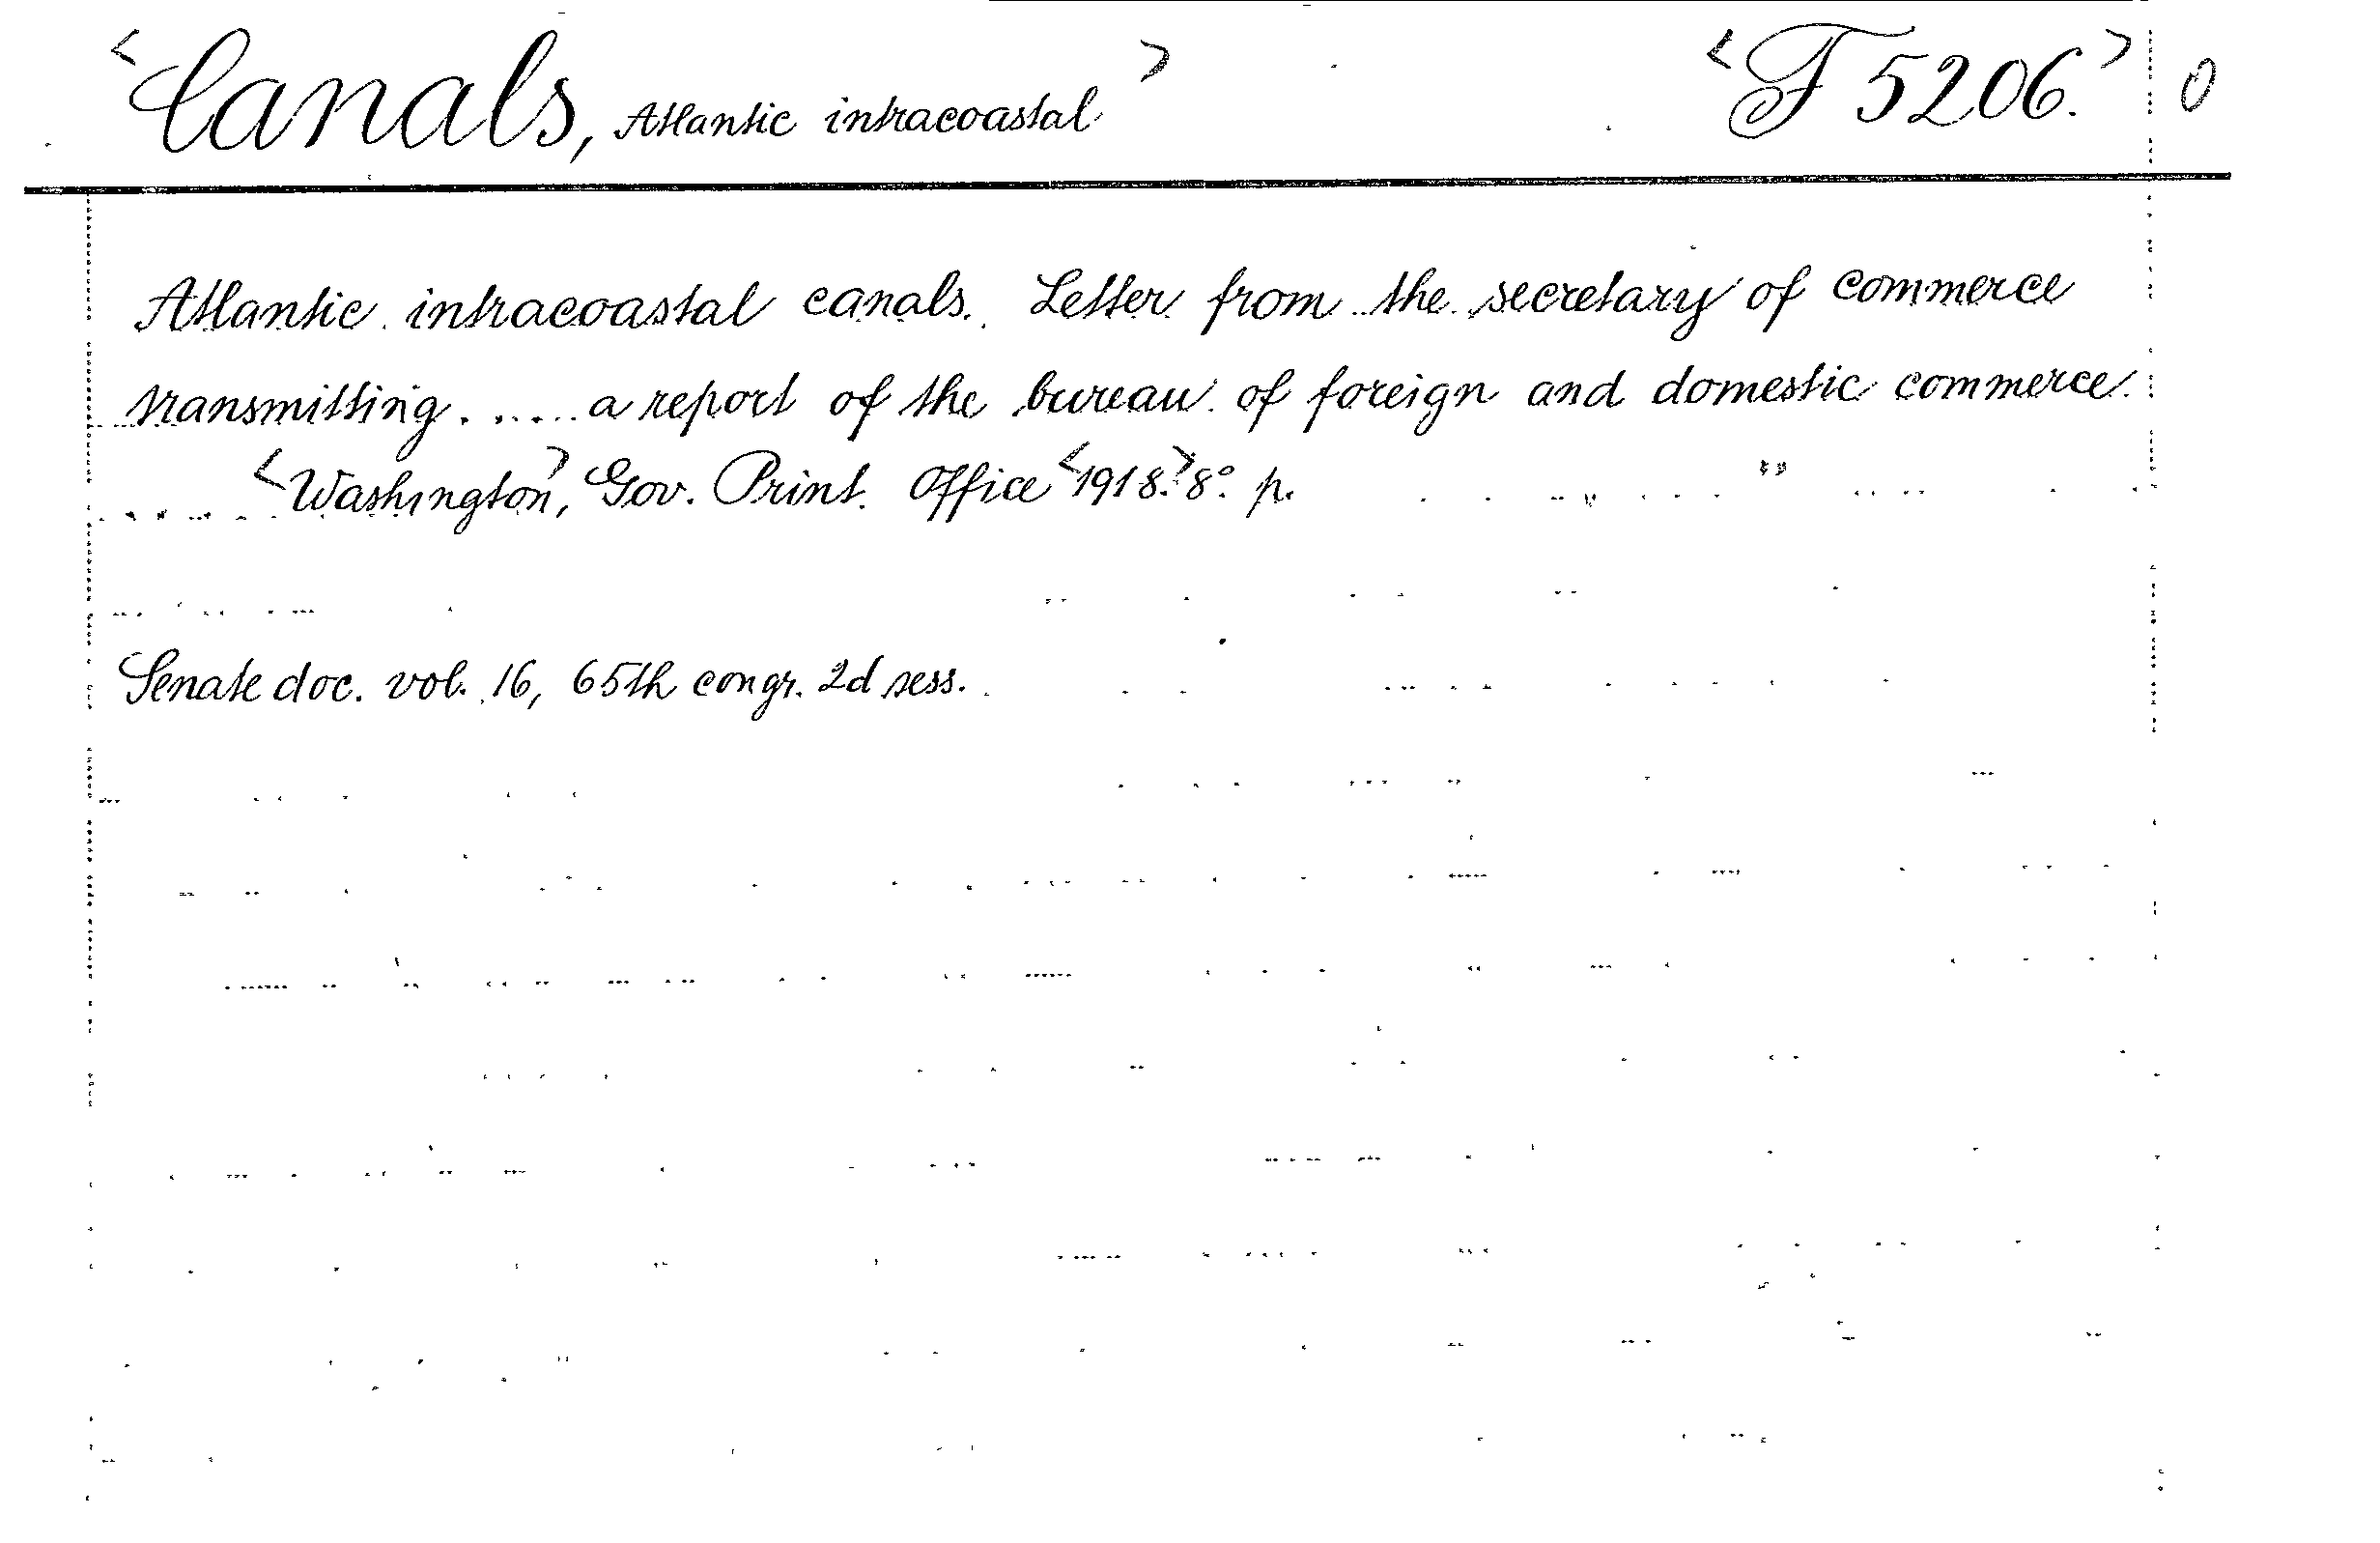 <Canals, Atlantic intracoastal> <F 5206.> 0
Atlantic intracoastal canals. Letter from the secretary of commerce
transmitting ..... a report of the bureau of foreign and domestic commerce.
<Washington>, Gov. Print. Office <1918.> 8°. p.
Senate doc. vol. 16, 65th congr. 2d sess.